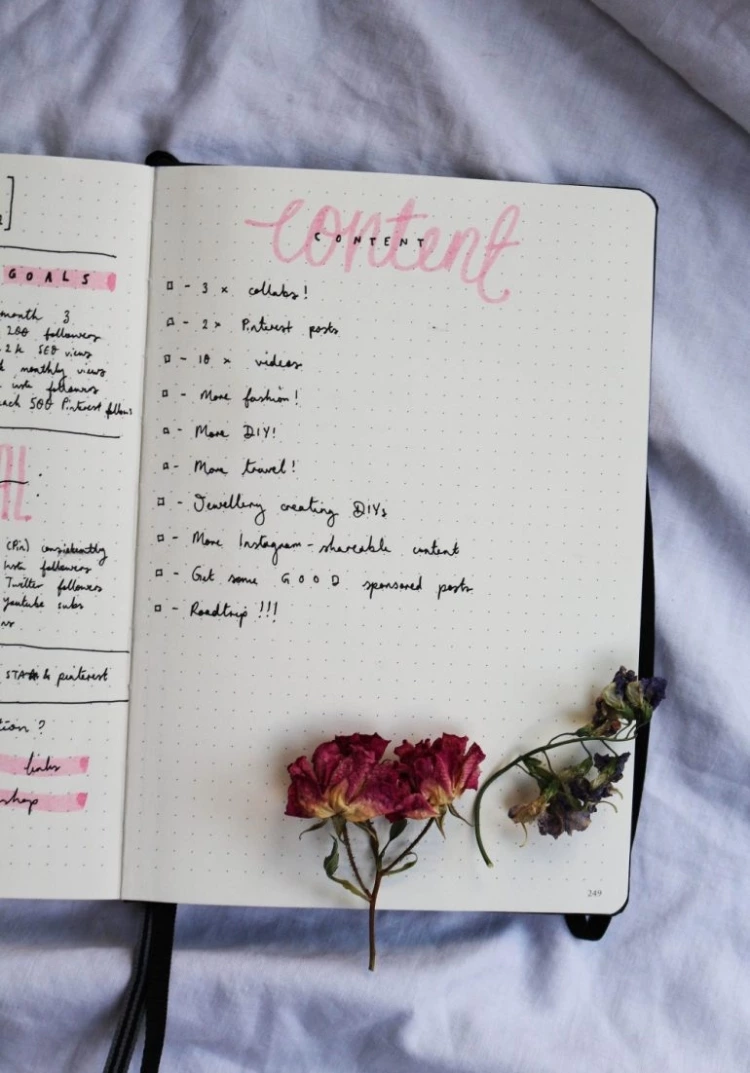 GOALS
month 3
200 followers
2k 500 views
monthly views
insta followers
500 Pinterest
(Pin) consistently
Insta followers
Twitter followers
Youtube subs
& pinterest
?
links
content
CONTENT
- 3 x collabs!
- 2x Pinterest posts
- 10 x videos
- More fashion!
- More DIY!
- More travel!
- Jewellery creating DIYs
- More Instagram-shareable content
- Get some GOOD sponsored posts
- Roadtrip!!!
249